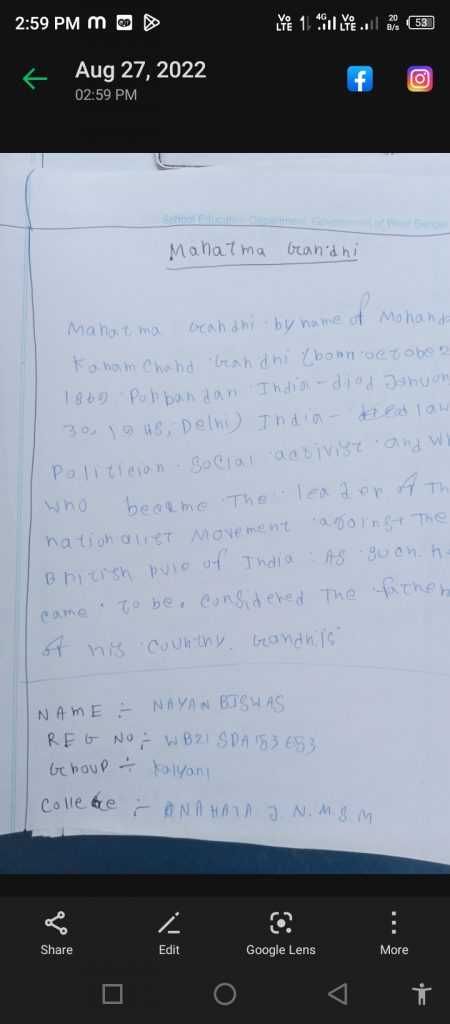 2:59 PM m
Vo LTE 4G Vo LTE 20 B/s 53
Aug 27, 2022
02:59 PM
School Education Department, Government of West Bengal
Mahatma Gandhi
Mahatma Gandhi by name of Mohand
Karam Chand Gandhi (born octobe 2
1869 Porbandar India - died Januar
30, 1948, Delhi) India - law
Politician Social activist and
who became The leader of Th
nationalist Movement against The
British rule of India : As Such. H
came to be, considered The father
of his country. Gandhi's
NAME :- NAYAN BISWAS
REG NO :- WB21 SDA153653
Group :- Kalyani
College :- ANAHATA J N.M S M
Share
Edit
Google Lens
More